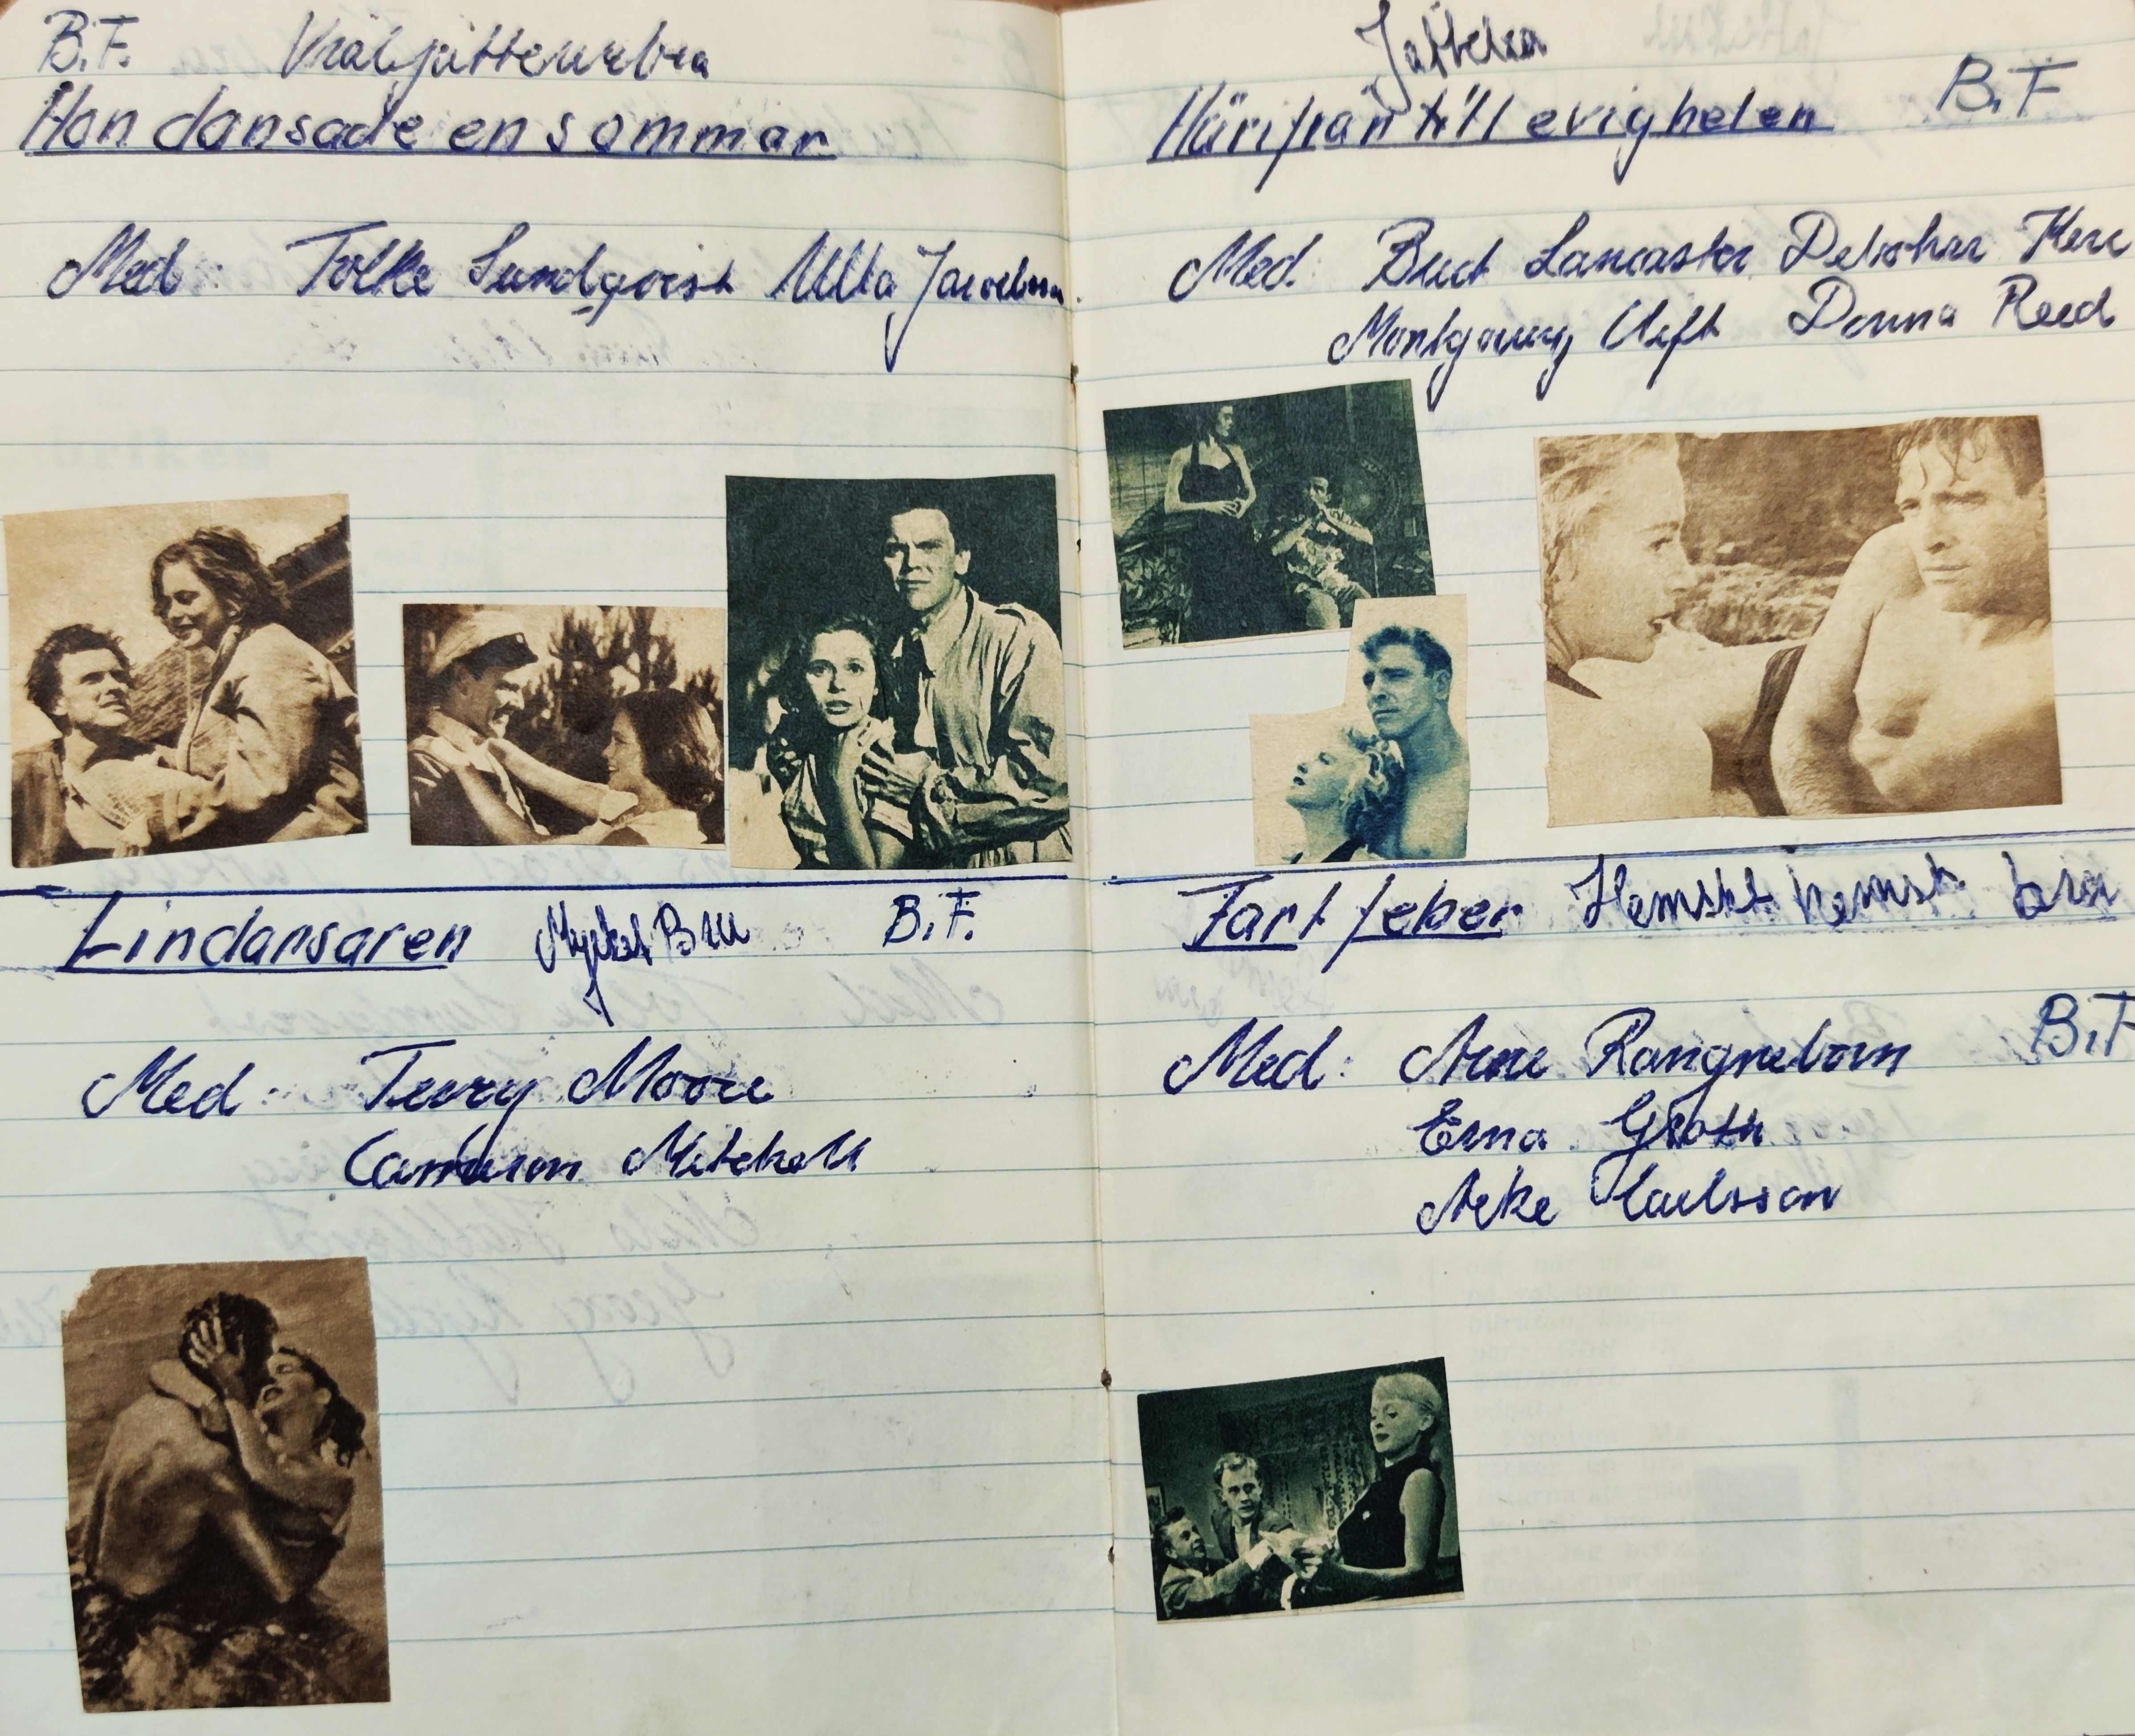 B.F. Vråljätteurbra
Hon dansade en sommar
Med: Folke Sundqvist Ulla Jacobsson.
Lindansaren Mycket Bra B.F.
Med: Terry Moore
Cameron Mitchell
Jättebra
Härifrån till evigheten B.F
Med: Burt Lancaster Debohra Kerr
Montgomery Clift Donna Reed
Fartfeber Hemskt hemskt bra
Med: Arne Rangneborn B.F
Erna Groth
Åke Karlsson